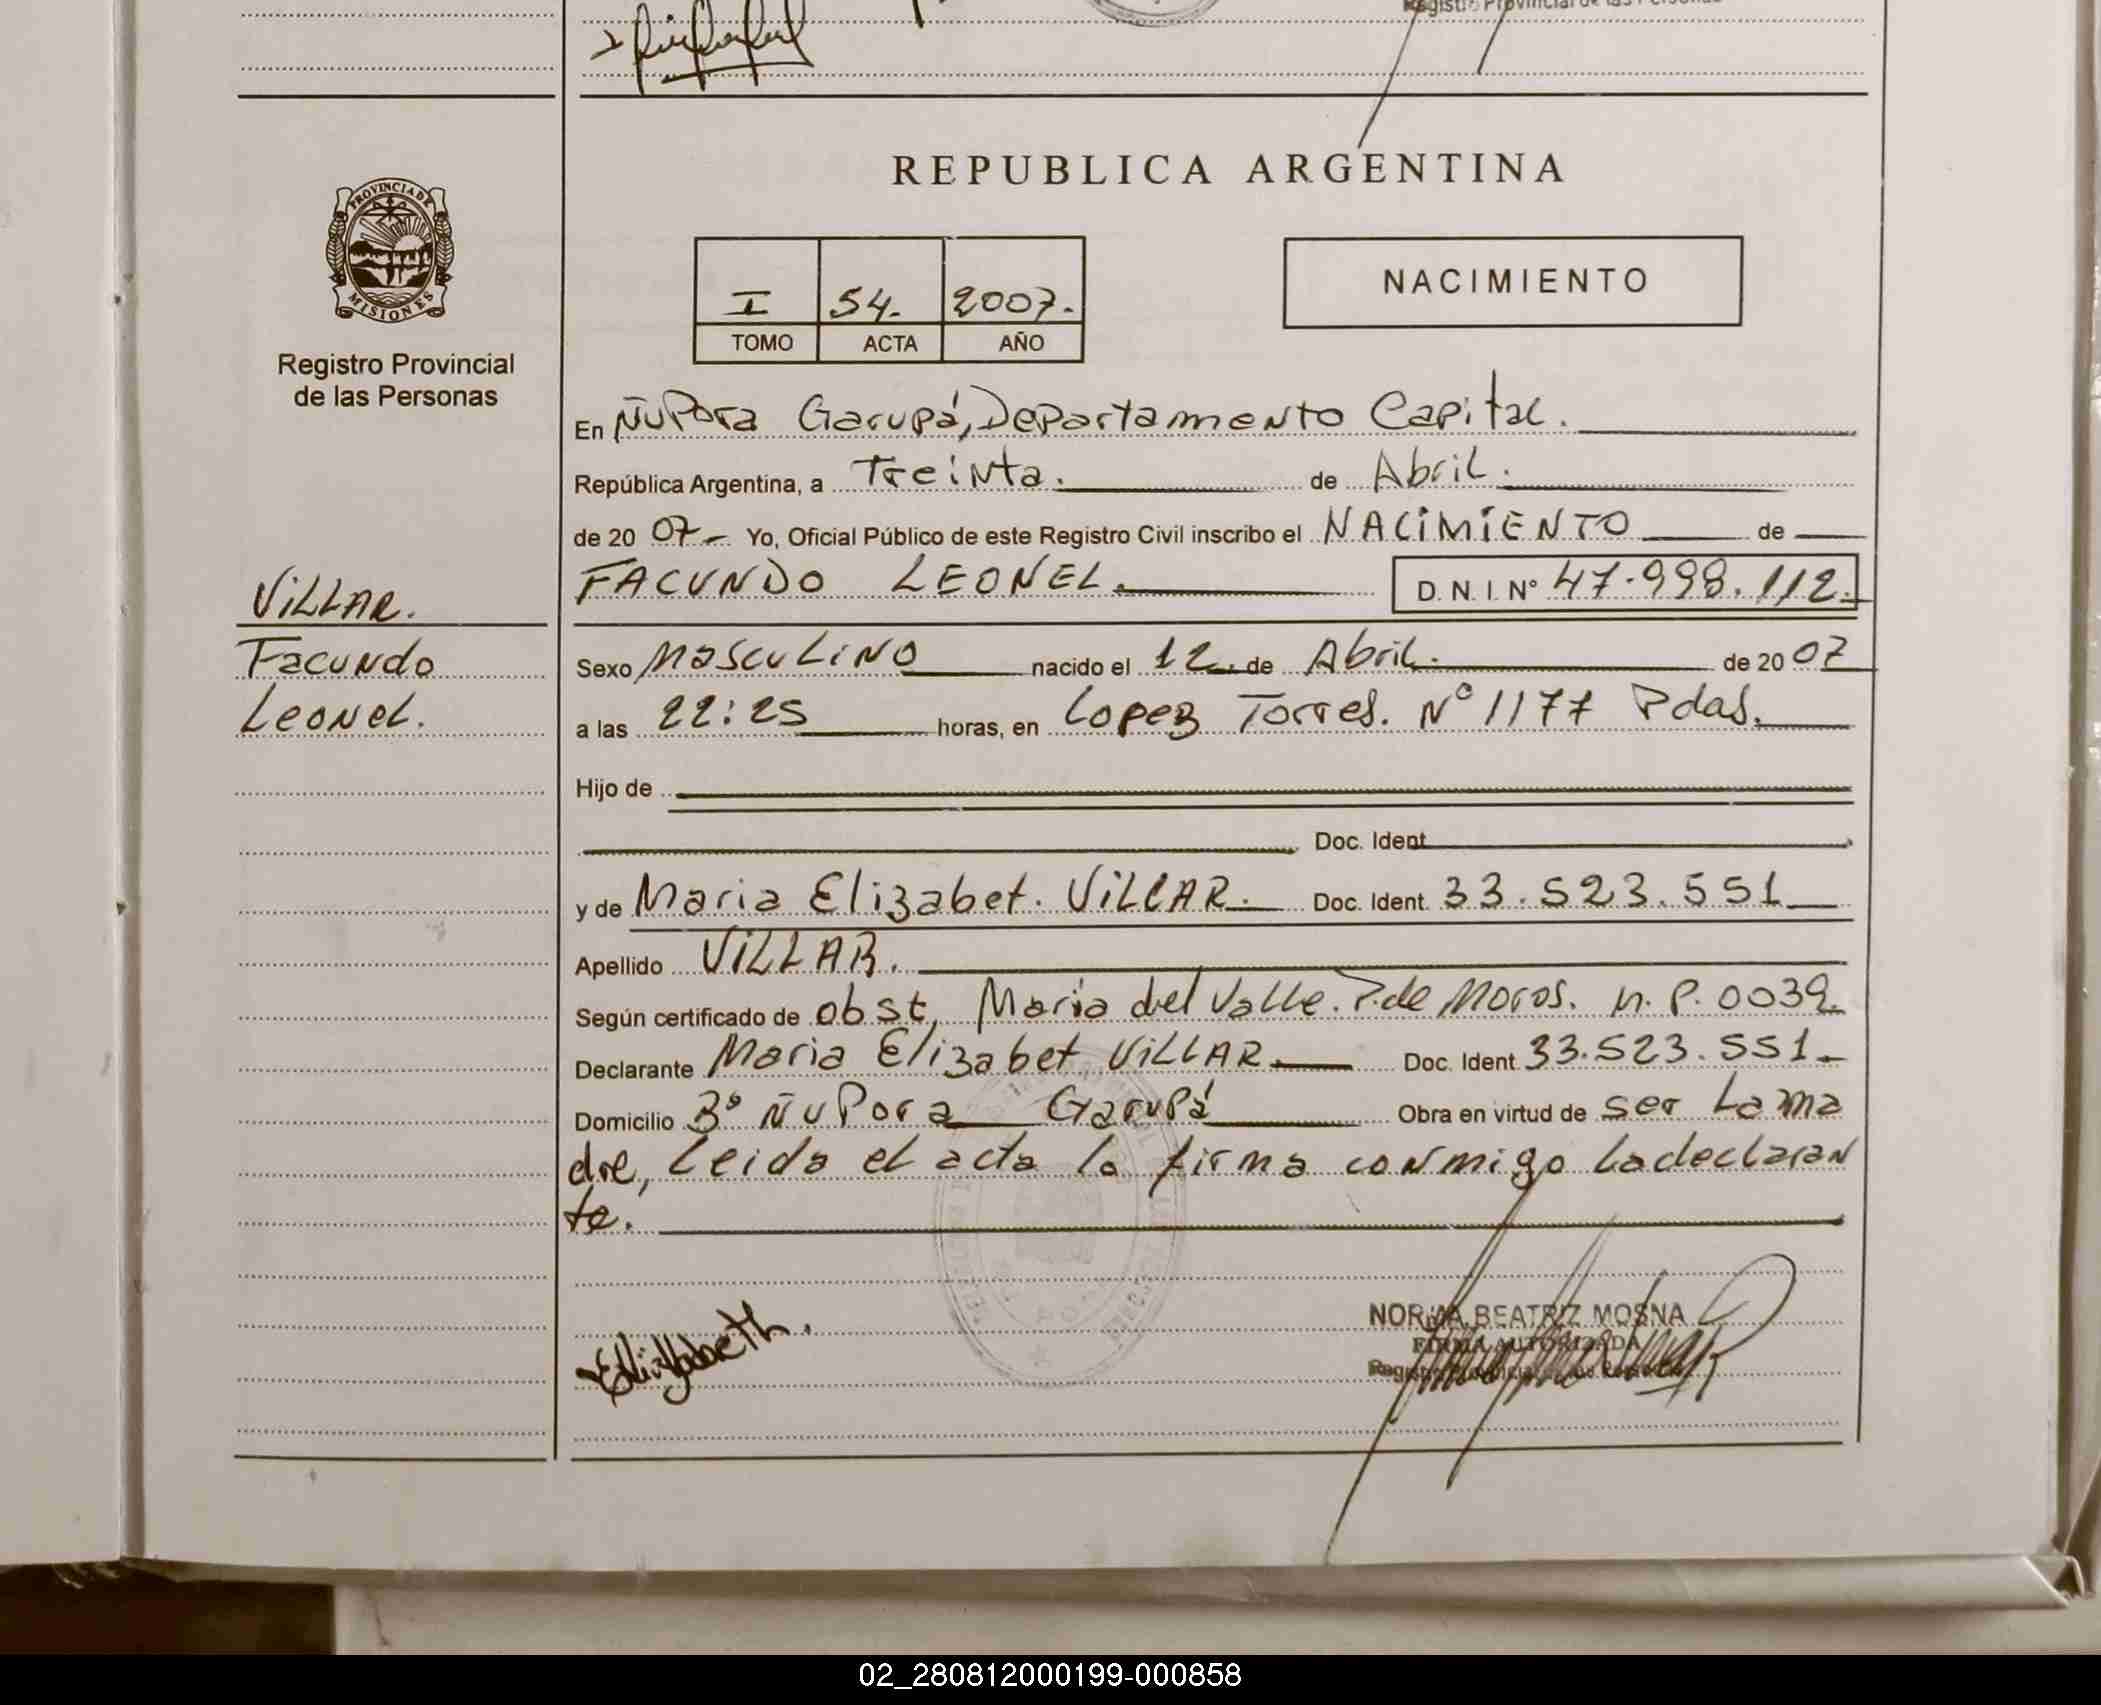 Registro Provincial de las Personas
REPUBLICA ARGENTINA
PROVINCIA DE
MISIONES
Registro Provincial
de las Personas
I 54. 2007.
TOMO ACTA AÑO
NACIMIENTO
En Ñu Pora Garupá, Departamento Capital.
República Argentina, a Treinta. de Abril.
de 20 07- Yo, Oficial Público de este Registro Civil inscribo el NACIMIENTO de
FACUNDO LEONEL. D. N. I. Nº 47.998.112.
VILLAR.
Facundo
Leonel.
Sexo Masculino nacido el 12 de Abril. de 20 07
a las 22:25 horas, en Lopez Torres. Nº 1177 Pdas.
Hijo de
Doc. Ident
y de Maria Elizabet. VILLAR. Doc. Ident. 33.523.551
Apellido VILLAR.
Según certificado de obst, Maria del Valle. P. de Moros. M.P. 0039.
Declarante Maria Elizabet VILLAR Doc. Ident. 33.523.551-
Domicilio Bº Ñu Pora Garupá Obra en virtud de ser la ma
dre, leida el acta la firma conmigo la declaran
te.
Elizabeth.
NORMA BEATRIZ MOSNA
FIRMA AUTORIZADA
Registro Provincial de las Personas
02_280812000199-000858